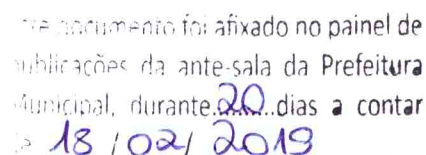 documento foi afixado no painel de
publicações da ante-sala da Prefeitura
Municipal, durante..20...dias a contar
18/02/2019